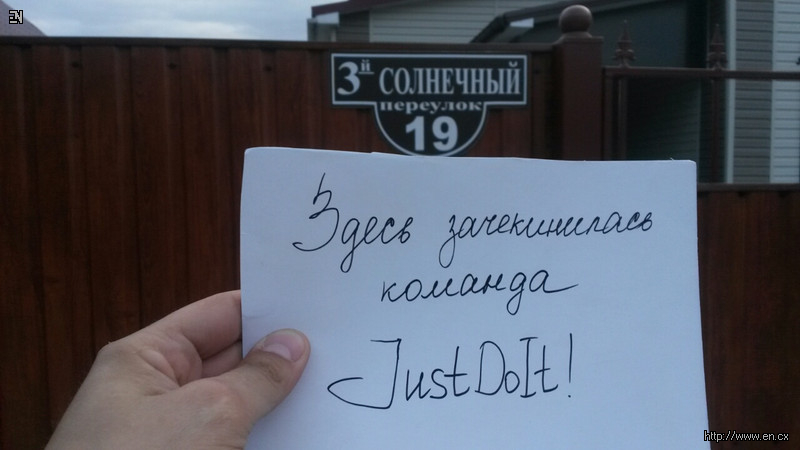 EN
3й СОЛНЕЧНЫЙ
переулок
19
Здесь зачекинилась
команда
JustDoIt!
http://www.en.cx